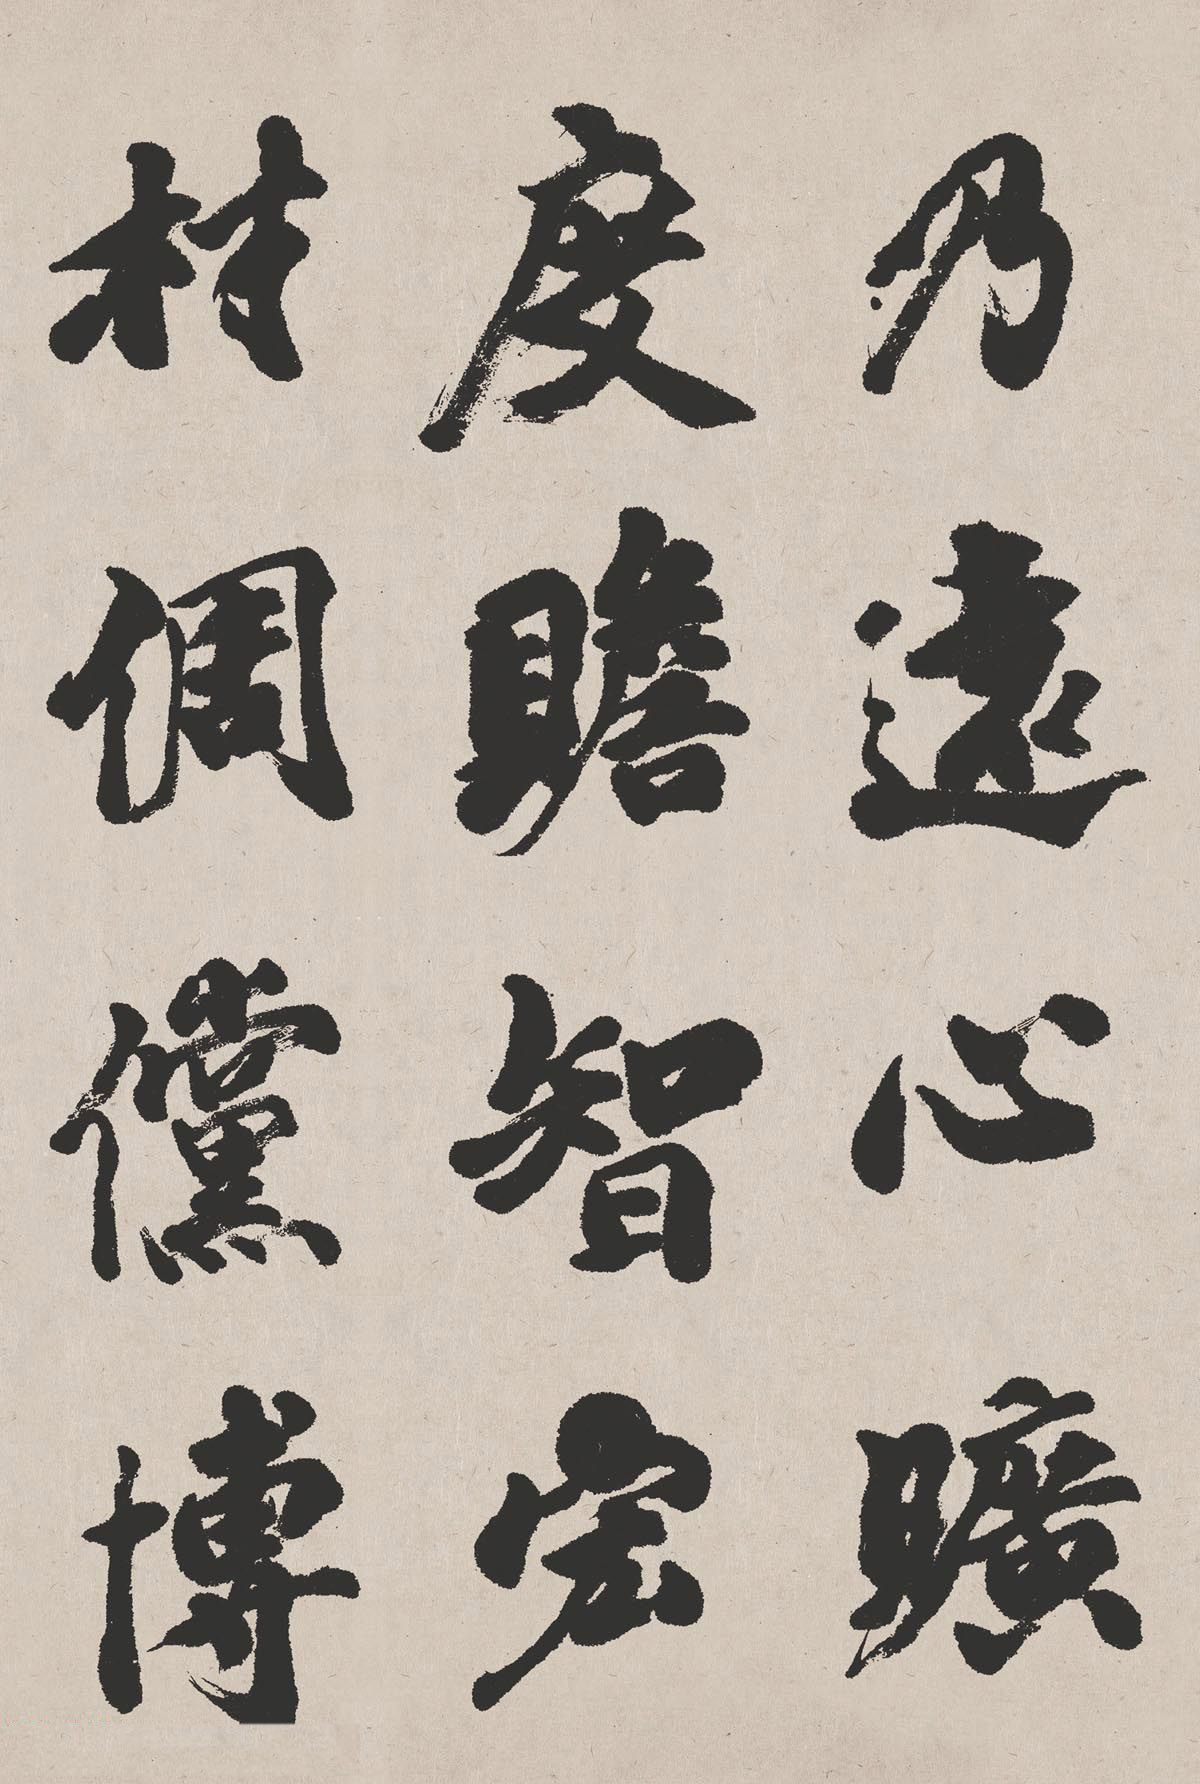 乃遠心曠
度贍智宏
材倜儻博